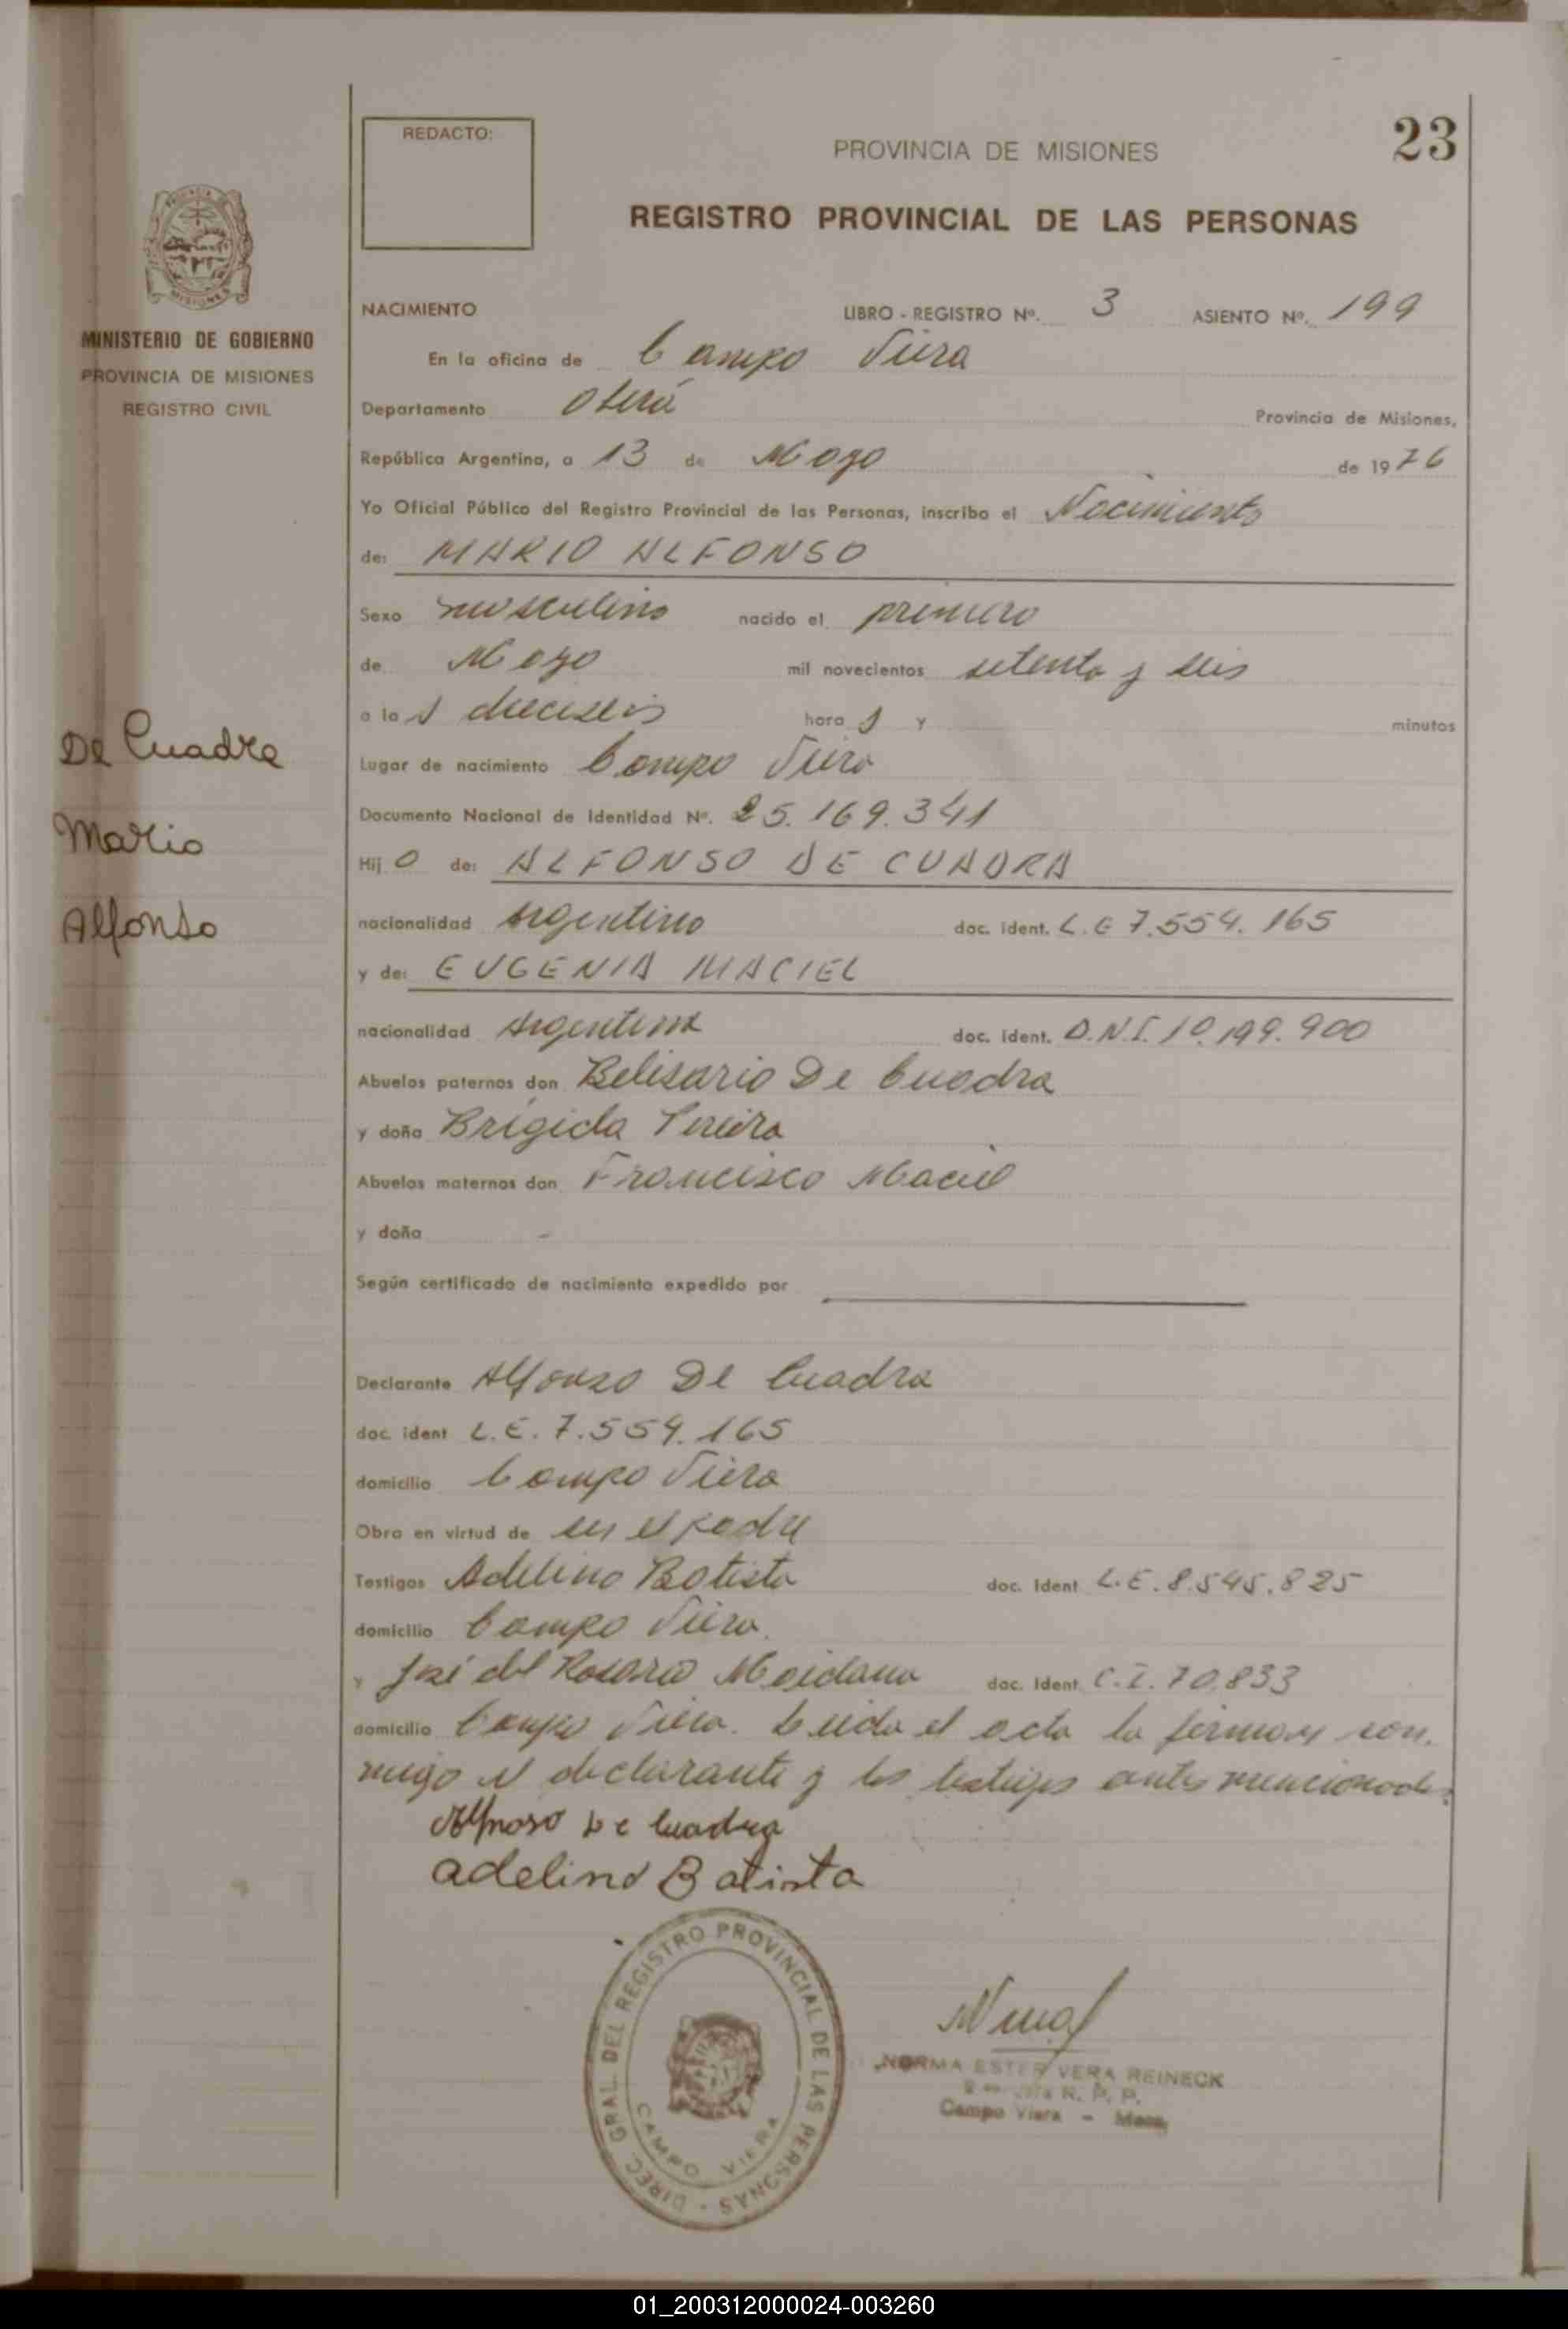 23
REDACTO:
PROVINCIA DE MISIONES
REGISTRO PROVINCIAL DE LAS PERSONAS
MINISTERIO DE GOBIERNO
PROVINCIA DE MISIONES
REGISTRO CIVIL
De Cuadra
Mario
Alfonso
NACIMIENTO LIBRO - REGISTRO Nº. 3 ASIENTO Nº. 199
En la oficina de Campo Viera
Departamento Oberá Provincia de Misiones,
República Argentina, a 13 de Mayo de 1976
Yo Oficial Público del Registro Provincial de las Personas, inscribo el Nacimiento
de: MARIO ALFONSO
Sexo masculino nacido el primero
de Mayo mil novecientos setenta y seis
a las dieciseis horas y minutos
Lugar de nacimiento Campo Viera
Documento Nacional de Identidad Nº. 25.169.341
Hijo de: ALFONSO DE CUADRA
nacionalidad Argentino doc. ident. L.E 7.554.165
y de: EUGENIA MACIEL
nacionalidad Argentina doc. ident. D.N.I. 10.199.900
Abuelos paternos don Belisario De Cuadra
y doña Brigida Pereira
Abuelos maternos don Francisco Maciel
y doña -
Según certificado de nacimiento expedido por
Declarante Alfonso De Cuadra
doc. ident L.E. 7.554.165
domicilio Campo Viera
Obra en virtud de ser el padre
Testigos Adelino Batista doc. Ident L.E. 8.545.825
domicilio Campo Viera.
y José del Rosario Maidana doc. Ident C.I. 70.833
domicilio Campo Viera. Leida el acta la firman con-
migo el declarante y los testigos antes mencionados.
De Cuadra
adelino Batista
DIREC. GRAL. DEL REGISTRO PROVINCIAL DE LAS PERSONAS -
CAMPO VIERA
NORMA ESTER VERA REINECK
R. P. P.
Campo Viera - Mnes.
01_200312000024-003260